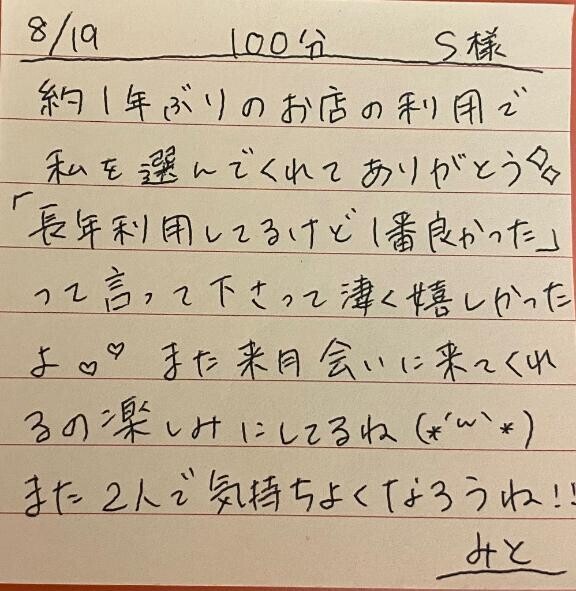 8/19 100分 S様
約1年ぶりのお店の利用で
私を選んでくれてありがとう
「長年利用してるけど1番良かった」
って言って下さって凄く嬉しかった
よ♡♡ また来月会いに来てくれ
るの楽しみにしてるね(*´ω`*)
また2人で気持ちよくなろうね!!
みと